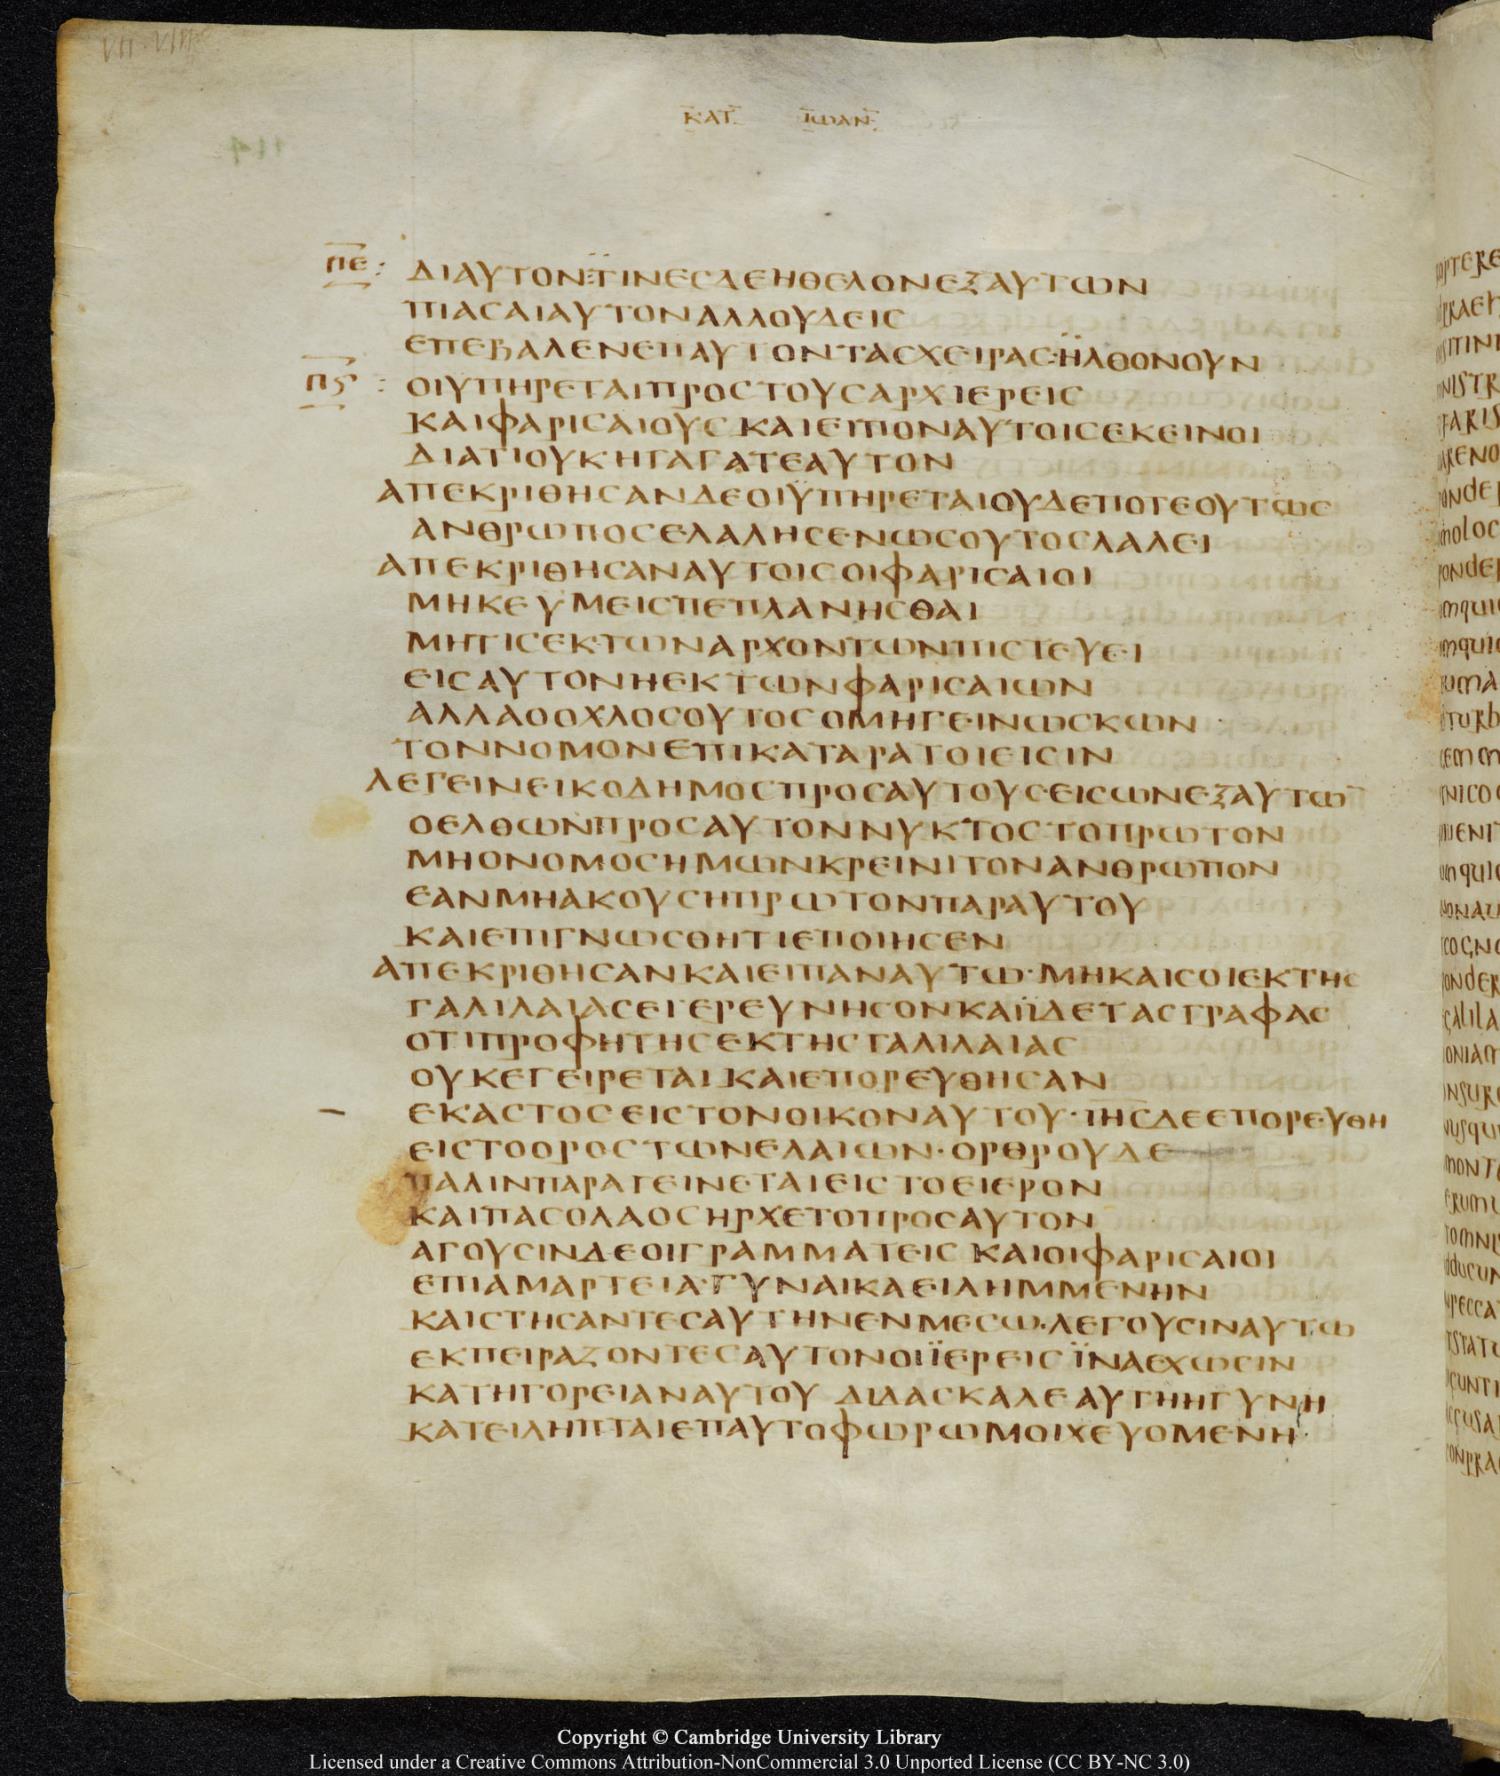 VII·VIII
ΚΑΤ ΙΩΑΝ
114
ΠΕ : ΔΙΑΥΤΟΝ:ΤΙΝΕСΔΕΗΘΕΛΟΝΕΞΑΥΤΩΝ
ΠΙΑСΑΙΑΥΤΟΝΑΛΛΟΥΔΕΙС
ΕΠΕΒΑΛΕΝΕΠΑΥΤΟΝΤΑСΧΕΙΡΑС·ΗΛΘΟΝΟΥΝ
ΠϚ : ΟΙΥΠΗΡΕΤΑΙΠΡΟСΤΟΥСΑΡΧΙΕΡΕΙС
ΚΑΙΦΑΡΙСΑΙΟΥС ΚΑΙΕΙΠΟΝΑΥΤΟΙСΕΚΕΙΝΟΙ
ΔΙΑΤΙΟΥΚΗΓΑΓΑΤΕΑΥΤΟΝ
ΑΠΕΚΡΙΘΗСΑΝΔΕΟΙΥΠΗΡΕΤΑΙΟΥΔΕΠΟΤΕΟΥΤΩС
ΑΝΘΡΩΠΟСΕΛΑΛΗСΕΝΩСΟΥΤΟСΛΑΛΕΙ
ΑΠΕΚΡΙΘΗСΑΝΑΥΤΟΙСΟΙΦΑΡΙСΑΙΟΙ
ΜΗΚΕΥΜΕΙСΠΕΠΛΑΝΗСΘΑΙ
ΜΗΤΙСΕΚΤΩΝΑΡΧΟΝΤΩΝΠΙСΤΕΥΕΙ
ΕΙСΑΥΤΟΝΗΕΚΤΩΝΦΑΡΙСΑΙΩΝ
ΑΛΛΑΟΟΧΛΟСΟΥΤΟСΟΜΗΓΕΙΝΩСΚΩΝ
ΤΟΝΝΟΜΟΝΕΠΙΚΑΤΑΡΑΤΟΙΕΙСΙΝ
ΛΕΓΕΙΝΕΙΚΟΔΗΜΟСΠΡΟСΑΥΤΟΥСΕΙСΩΝΕΞΑΥΤΩ̅
ΟΕΛΘΩΝΠΡΟСΑΥΤΟΝΝΥΚΤΟСΤΟΠΡΩΤΟΝ
ΜΗΟΝΟΜΟСΗΜΩΝΚΡΕΙΝΙΤΟΝΑΝΘΡΩΠΟΝ
ΕΑΝΜΗΑΚΟΥСΗΠΡΩΤΟΝΠΑΡΑΥΤΟΥ
ΚΑΙΕΠΙΓΝΩСΘΗΤΙΕΠΟΙΗСΕΝ
ΑΠΕΚΡΙΘΗСΑΝΚΑΙΕΙΠΑΝΑΥΤΩ·ΜΗΚΑΙСΟΙΕΚΤΗС
ΓΑΛΙΛΑΙΑСΕΙ·ΕΡΕΥΝΗСΟΝΚΑΙΪΔΕΤΑСΓΡΑΦΑС
ΟΤΙΠΡΟΦΗΤΗСΕΚΤΗСΓΑΛΙΛΑΙΑС
ΟΥΚΕΓΕΙΡΕΤΑΙ ΚΑΙΕΠΟΡΕΥΘΗСΑΝ
– ΕΚΑСΤΟСΕΙСΤΟΝΟΙΚΟΝΑΥΤΟΥ·Ι̅Η̅С̅ΔΕΕΠΟΡΕΥΘΗ
ΕΙСΤΟΟΡΟСΤΩΝΕΛΑΙΩΝ·ΟΡΘΡΟΥΔΕ
ΠΑΛΙΝΠΑΡΑΓΕΙΝΕΤΑΙΕΙСΤΟΕΙΕΡΟΝ
ΚΑΙΠΑСΟΛΑΟСΗΡΧΕΤΟΠΡΟСΑΥΤΟΝ
ΑΓΟΥСΙΝΔΕΟΙΓΡΑΜΜΑΤΕΙС ΚΑΙΟΙΦΑΡΙСΑΙΟΙ
ΕΠΙΑΜΑΡΤΕΙΑ·ΓΥΝΑΙΚΑΕΙΛΗΜΜΕΝΗΝ
ΚΑΙСΤΗСΑΝΤΕСΑΥΤΗΝΕΝΜΕСΩ·ΛΕΓΟΥСΙΝΑΥΤΩ
ΕΚΠΕΙΡΑΖΟΝΤΕСΑΥΤΟΝΟΙΪΕΡΕΙСΪΝΑΕΧΩСΙΝ
ΚΑΤΗΓΟΡΕΙΑΝΑΥΤΟΥ ΔΙΔΑСΚΑΛΕΑΥΤΗΗΓΥΝΗ
ΚΑΤΕΙΛΗΠΤΑΙΕΠΑΥΤΟΦΩΡΩΜΟΙΧΕΥΟΜΕΝΗ·
Copyright © Cambridge University Library
Licensed under a Creative Commons Attribution-NonCommercial 3.0 Unported License (CC BY-NC 3.0)